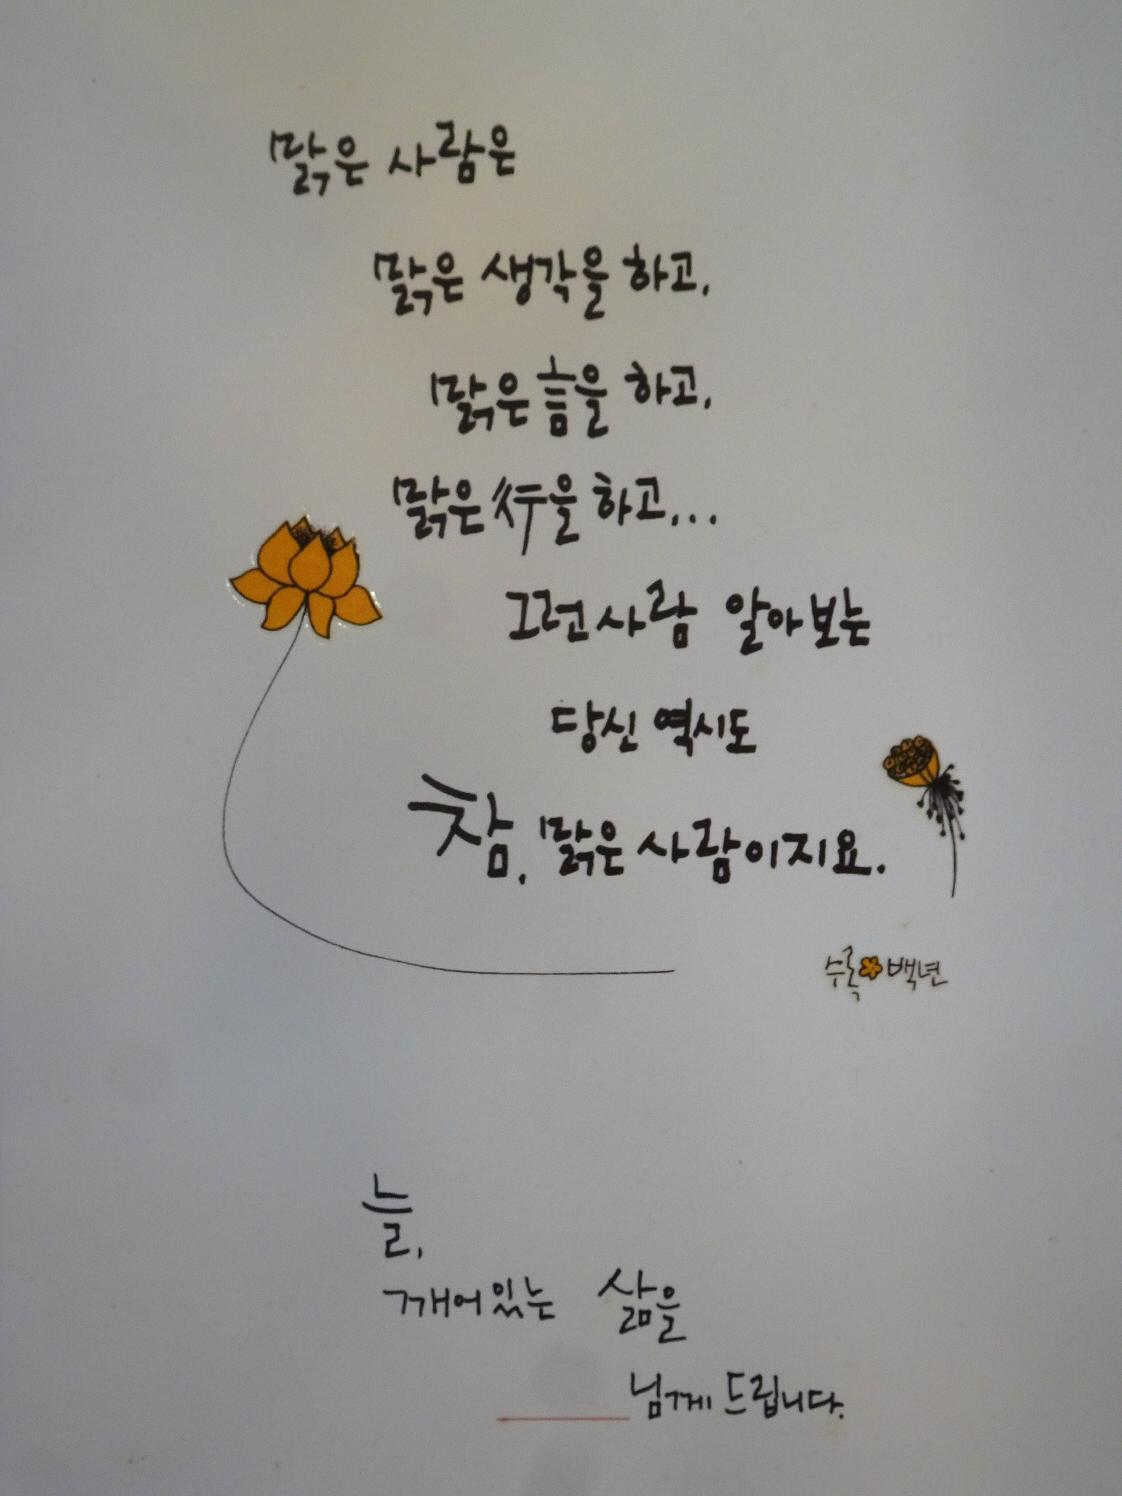 맑은 사람은
맑은 생각을 하고,
맑은 言을 하고,
맑은 行을 하고...
그런 사람 알아보는
당신 역시도
참, 맑은 사람이지요.
수록 백년
늘,
깨어있는 삶을
님께 드립니다.